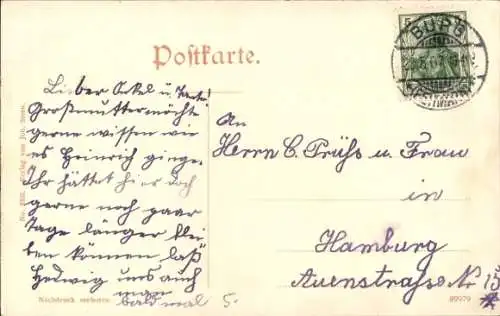 Postkarte.
Lieber Onkel u. Tante!
Großmutter möchte
gerne wissen wie
es Heinrich ginge.
Ihr hättet hier doch
gerne noch paar
Tage länger blei
ben können laß
Hedwig uns auch
man
bald mal
An
Herrn C. Prühs u. Frau
in
Hamburg
Auenstrasse Nr 15
5
BURG
Verlag von Joh.
Nachdruck verboten
89979